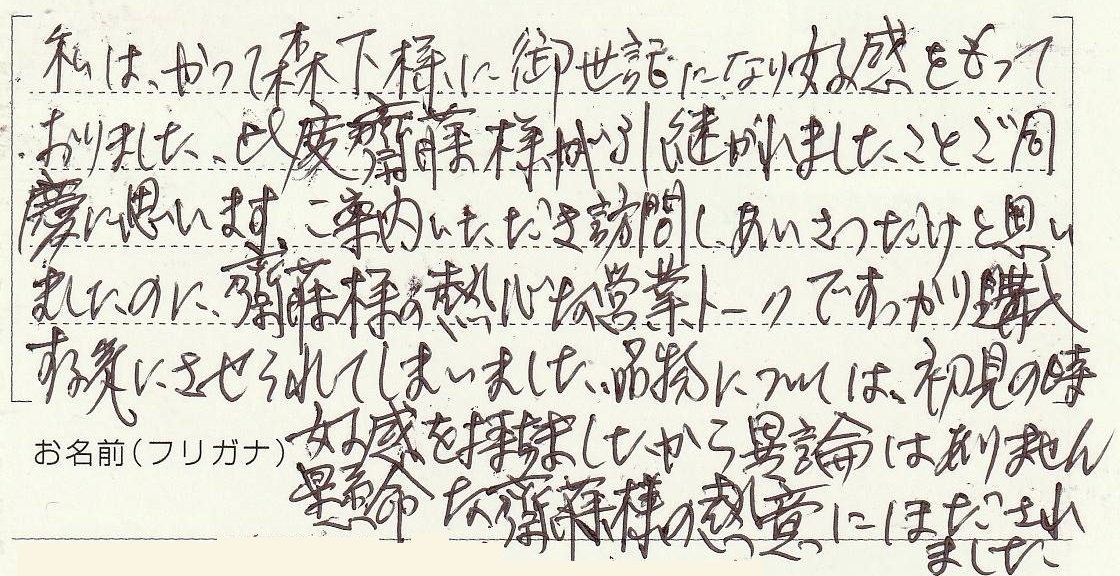 私は、かつて森下様に御世記になり好感をもって
おりました、此度齋藤様が引継がれましたことご同
慶に思います。ご案内いただき訪問し、あいさつだけと思い
ましたのに、齋藤様の熱心な営業トークですっかり購入
する気にさせられてしまいました、品物については、初見の時
お名前(フリガナ) 好感を持ましたから異論はありません
懸命な齋藤様の熱意にほだされ
ました